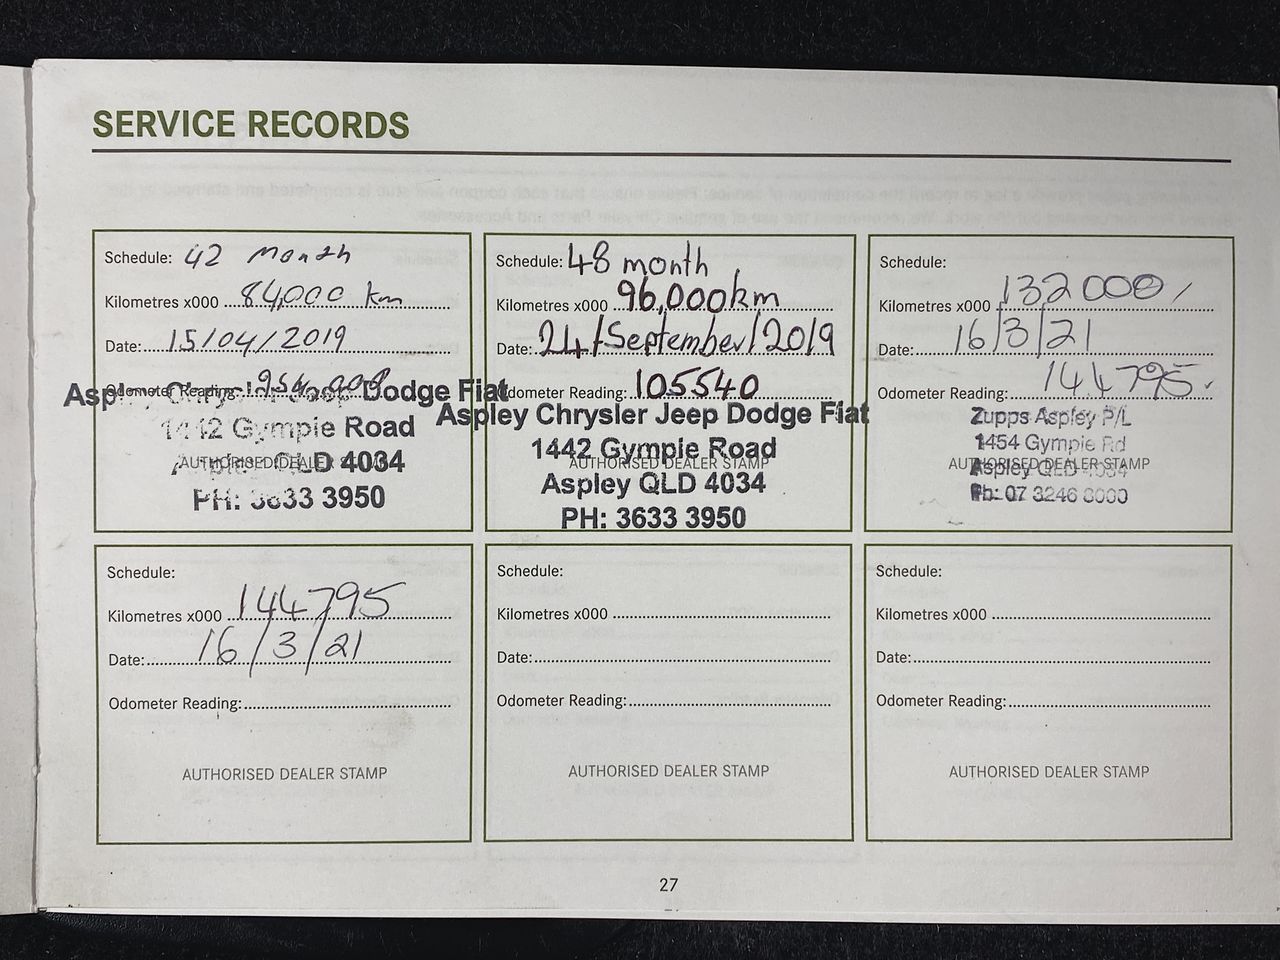 SERVICE RECORDS
Schedule: 42 month
Kilometres x000 84,000 km
Date: 15/04/2019
Odometer Reading:
Aspley Chrysler Jeep Dodge Fiat
1442 Gympie Road
AUTHORISED DEALER STAMP
QLD 4034
PH: 3633 3950
Schedule: 48 month
Kilometres x000 96,000km
Date: 24/September/2019
Odometer Reading: 105540
Aspley Chrysler Jeep Dodge Fiat
1442 Gympie Road
AUTHORISED DEALER STAMP
Aspley QLD 4034
PH: 3633 3950
Schedule:
Kilometres x000 132000
Date: 16/3/21
Odometer Reading: 144795
Zupps Aspley P/L
1454 Gympie Rd
AUTHORISED DEALER STAMP
Aspley QLD 4034
Ph: 07 3246 8000
Schedule:
Kilometres x000 144795
Date: 16/3/21
Odometer Reading:
AUTHORISED DEALER STAMP
Schedule:
Kilometres x000
Date:
Odometer Reading:
AUTHORISED DEALER STAMP
Schedule:
Kilometres x000
Date:
Odometer Reading:
AUTHORISED DEALER STAMP
27